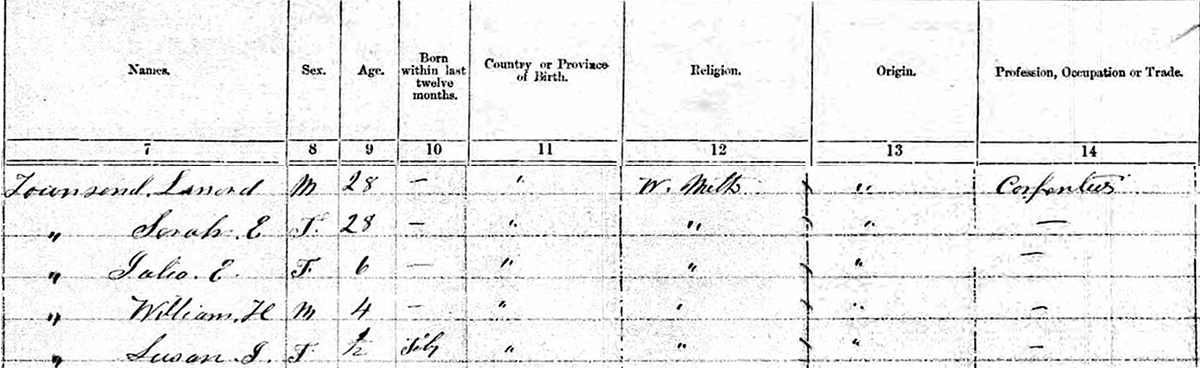 Names. Sex. Age. Born within last twelve months. Country or Province of Birth. Religion. Origin. Profession, Occupation or Trade.
7 8 9 10 11 12 13 14
Townsend. Lenord M 28 — " W. Meth " Carpenter
" Sarah. E F. 28 — " " " —
" Julia. E. F. 6 — " " " —
" William. H M 4 — " " " —
" Susan. J. F. " " " —